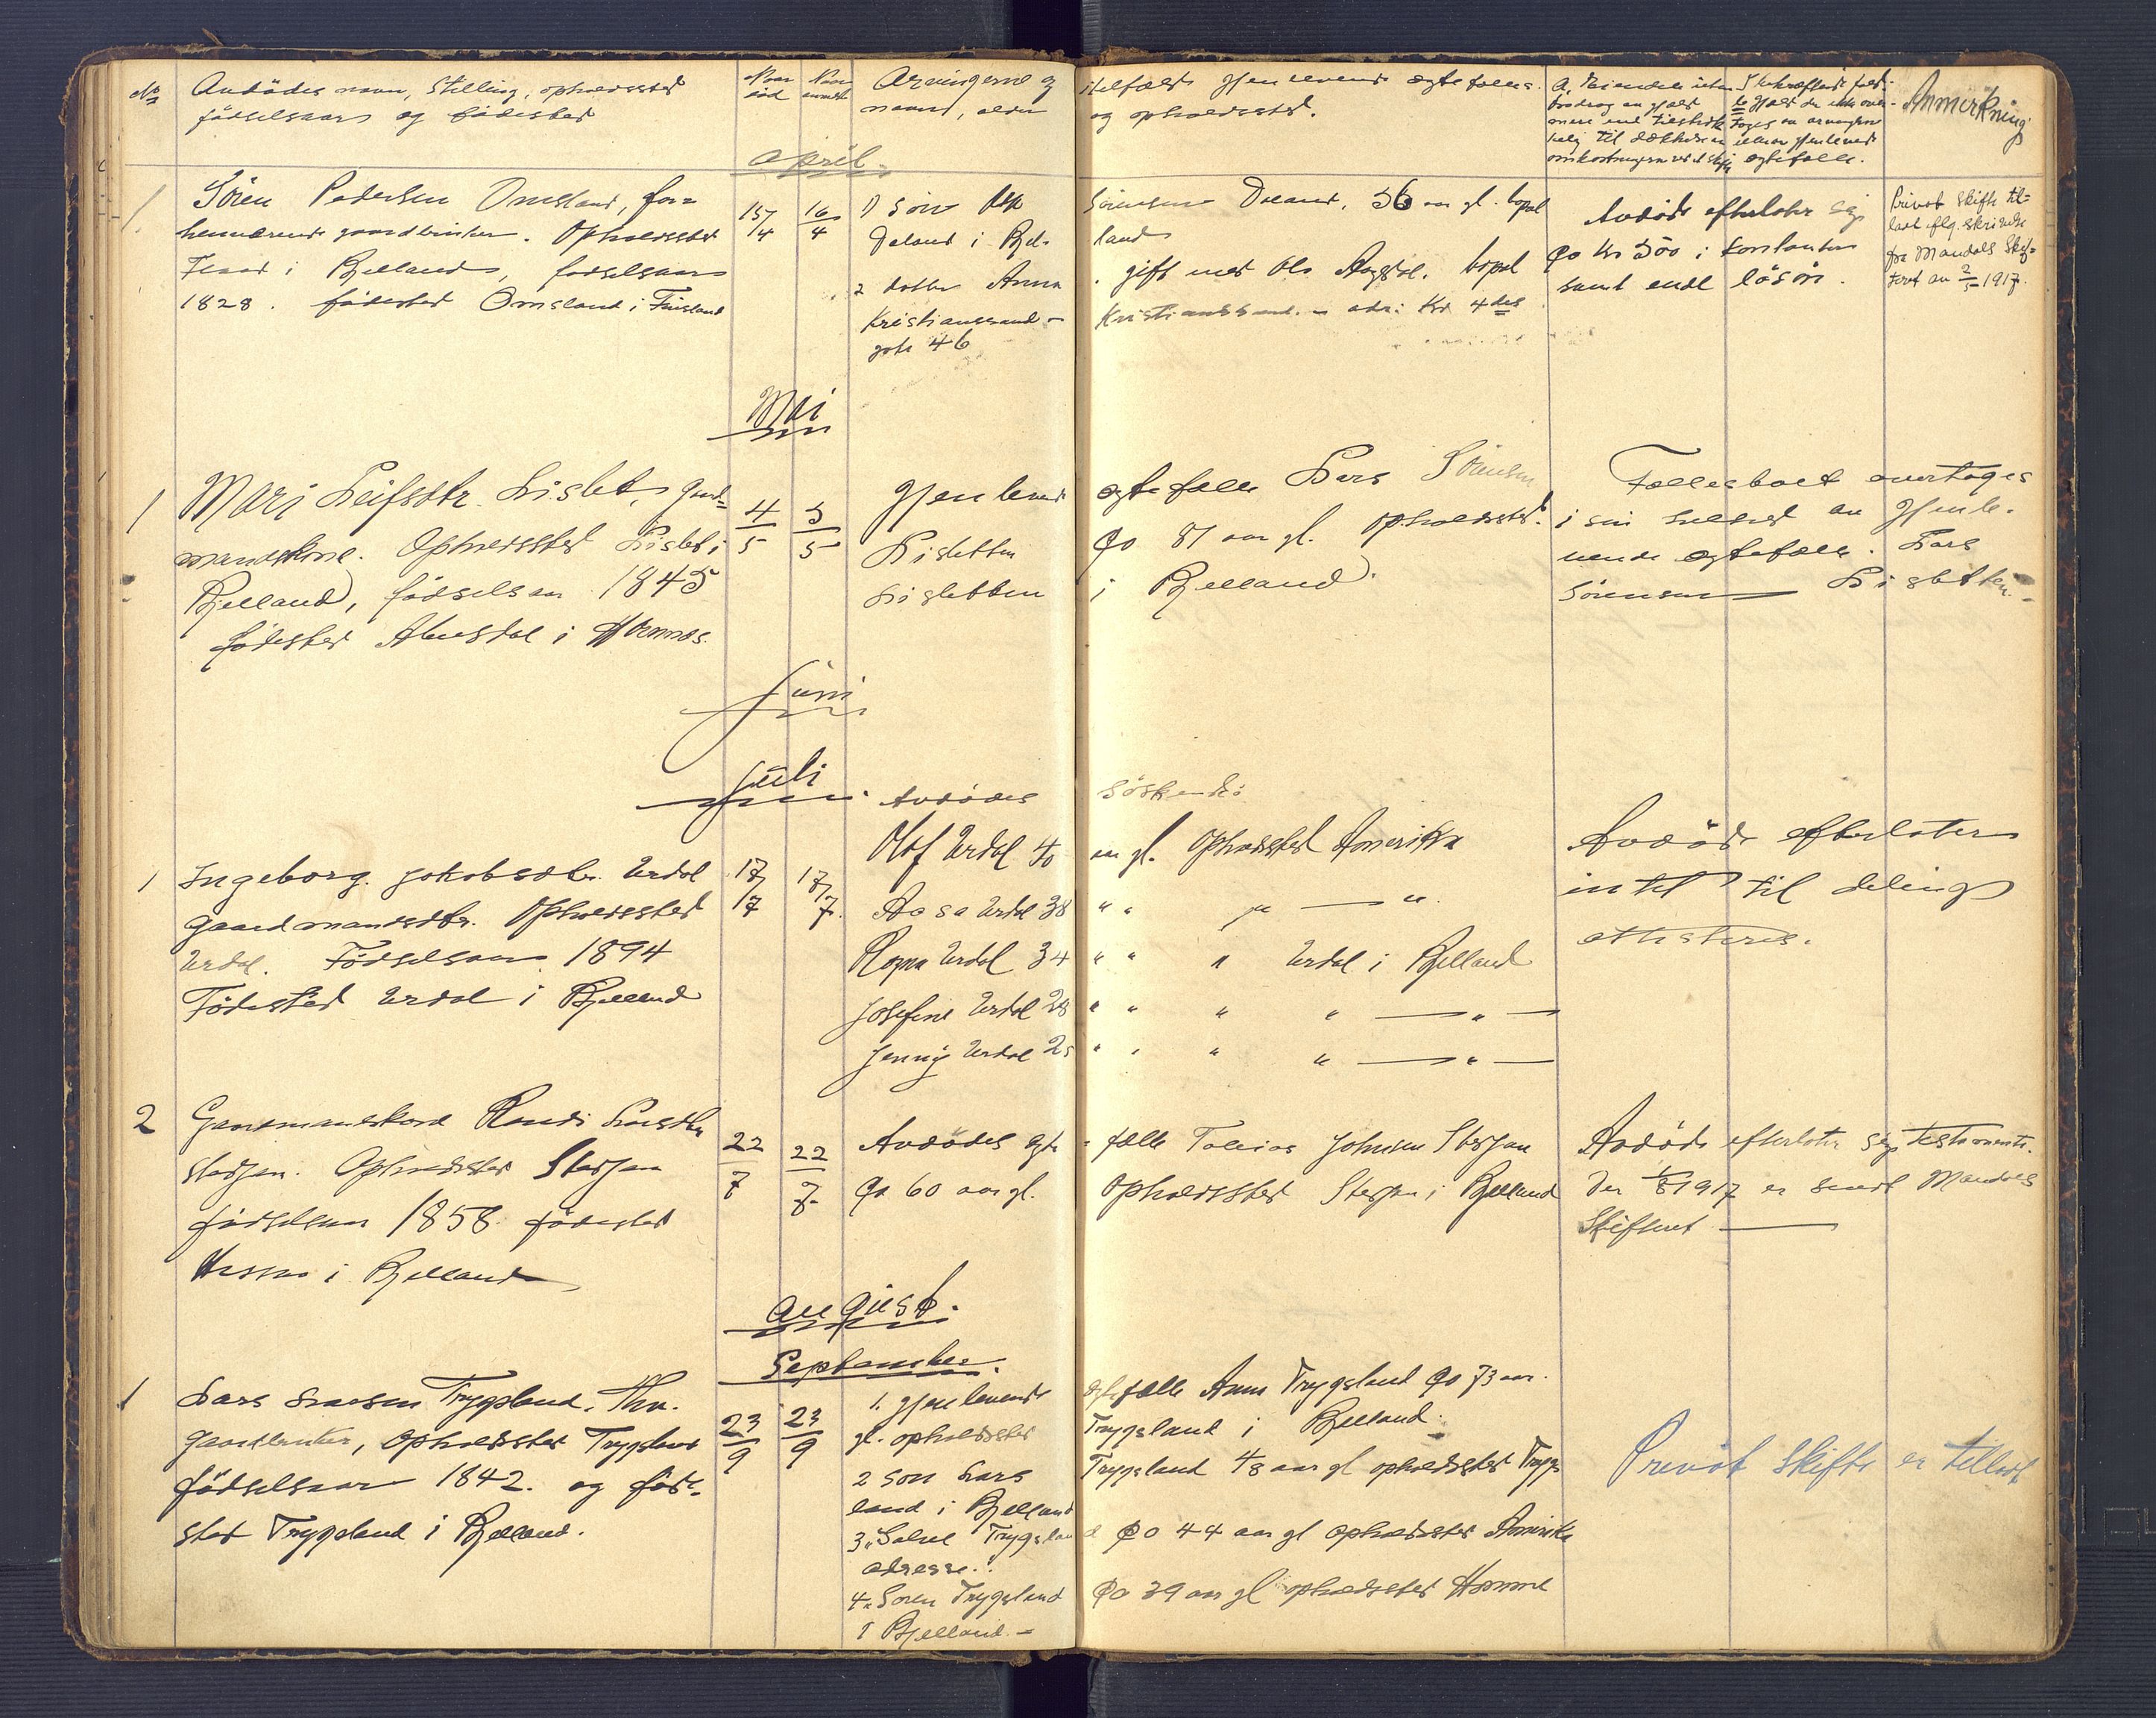 No
Avdödes navn, stilling, opholdssted
födselsaar og födested
Naar
död
Naar
anmeldt
Arvingerne og
navn, alder
itilfælde gjenlevende ægtefælles
og opholdssted.
Anmerkning
April
1.
Sören Pedersen Omsland, for=
henværende gaardbruker. Opholdssted
i Bjelland, fødselsaar
1828. födested Omsland i
15/4
16/4
1) Sön
Daland i Bjel-
2 datter Anna
Kristianssand -
gate 46
Sörensen Daland, 56 aar gl. bopæl
land
gift med Ole bopæl
Kristianssand. - adr: Kr 4des
Avdöde efterlater sig
ca kr 500 i kontanter
samt endl lösöre.
Privat skifte til=
latt iflg. skrivelse
fra Mandals Skif=
teret av 2/5 1917.
Mai
1
Mari Leifsdtr. Lislet, gaard=
mandskone. Opholdssted Lislet i
Bjelland, födselsaar 1845
födested i Hornnes.
4/5
5/5
Gjenlevende
Lisletten
Lisletten
ægtefælle Lars Sörensen
ca 81 aar gl. Opholdssted.
i Bjelland.
Fællesboet overtages
i sin helhet av gjenle-
vende ægtefælle. Lars
Sörensen Lisletten.
Juni
Juli
1
Ingeborg Jakobsdtr. Urdal
gaardmandsdtr. Opholdssted
Urdal. Födselsaar 1894
Födested Urdal i Bjelland
17/7
17/7.
Avdödes
Olaf Urdal 40
Aasa Urdal 38
Ragna Urdal 34
Josefine Urdal 28
Jenny Urdal 25
Söskende:
aar gl. Opholdssted Amerika
" " " — "
" " " Urdal i Bjelland
" " " " — " —
" " " " — " —
Avdöde efterlater
intet til deling
attesteres.
2
Gaardmandskone Randi Larsdtr
Stedjan. Opholdssted Stedjan
födselsaar 1858. födested
i Bjelland
22/7
22/7
Avdödes ægte
ca 60 aar gl.
= fælle Tobias Johnsen Stedjan
Opholdssted Stedjan i Bjelland
Avdöde efterlater sig testamente.
Der 1/8 1917 er sendt Mandals
Skifteret
August.
September.
1
Lars Larsen Trygsland. Fhv.
gaardbruker, Opholdssted Trygsland
födselsaar 1842. og föde-
sted Trygsland i Bjelland.
23/9
23/9
1. gjenlevende
gl. opholdssted
2 Sön Lars
land i Bjelland
3 " Salve Trygsland
adresse..
4 " Soren Trygsland
i Bjelland. -
ægtefælle Anne Trygsland ca 73 aar.
Trygsland i Bjelland.
Trygsland 48 aar gl opholdssted Trygs
ca 44 aar gl opholdssted Amerika
ca 39 aar gl opholdssted Homme
Privat skifte er tillatt